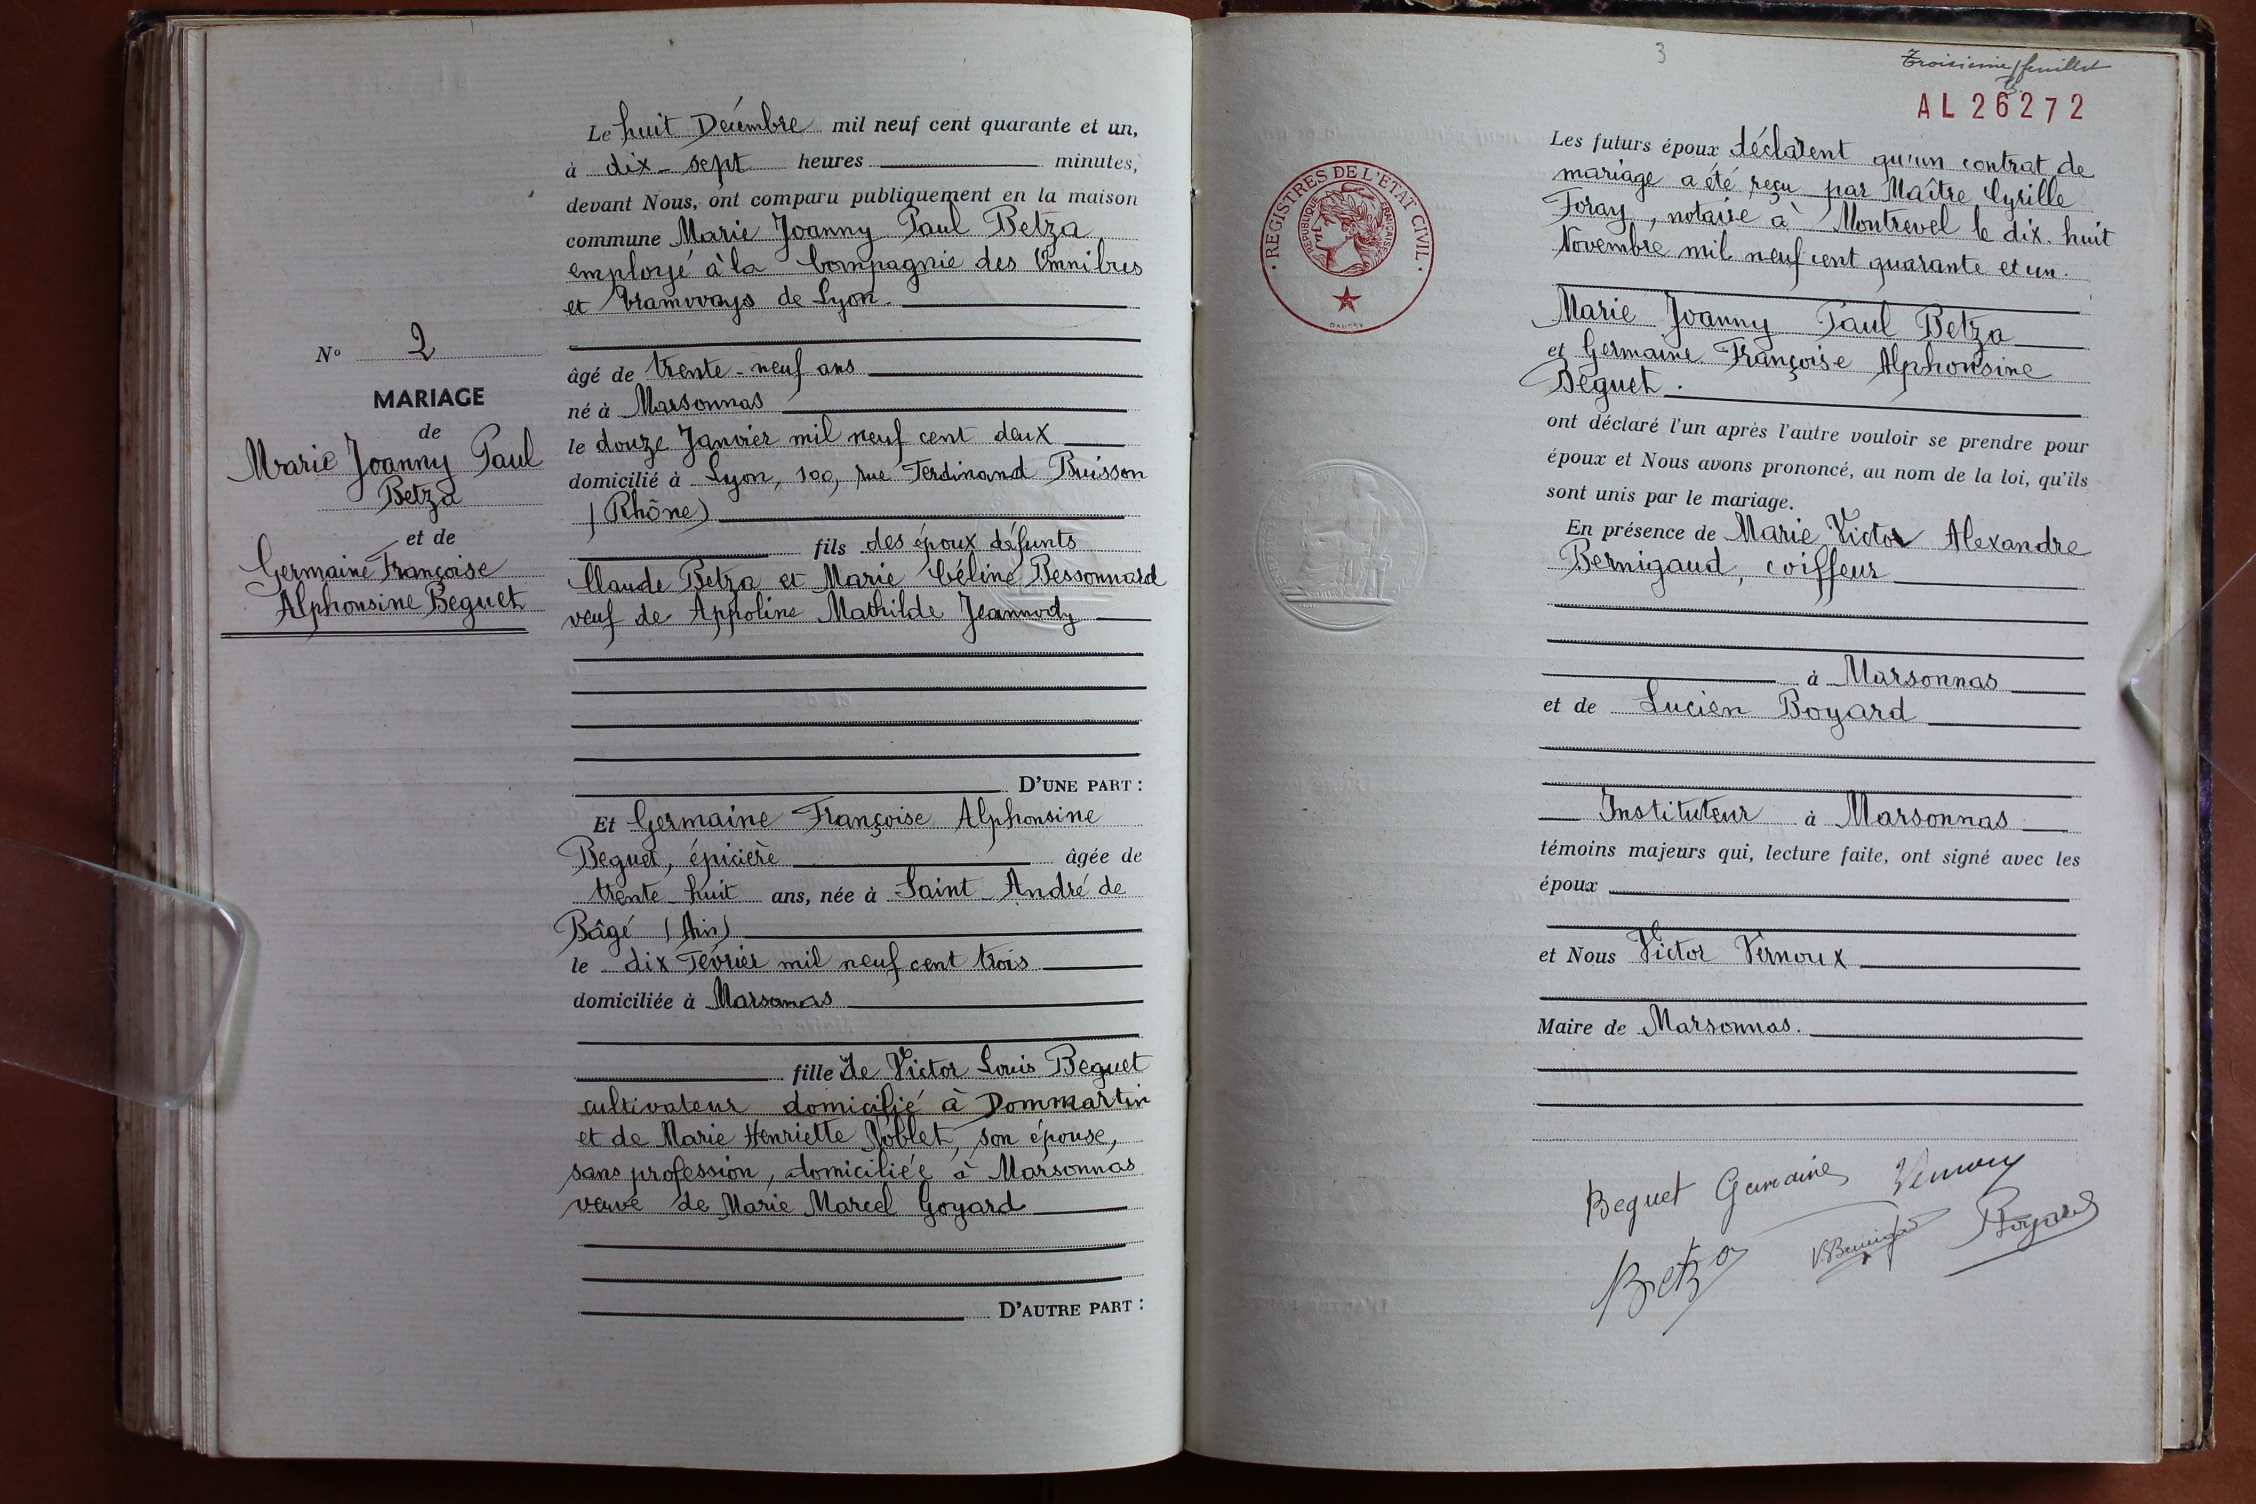 Le huit Décembre mil neuf cent quarante et un,
à dix-sept heures minutes,
devant Nous, ont comparu publiquement en la maison
commune Marie Joanny Paul Betza
employé à la Compagnie des Omnibus
et Tramways de Lyon.
âgé de trente-neuf ans
né à Marsonnas
le douze Janvier mil neuf cent deux
domicilié à Lyon, 100, rue Ferdinand Buisson
(Rhône)
fils des époux défunts
Claude Betza et Marie Céline Bessonnard
veuf de Appoline Mathilde Jeannody
D'UNE PART :
Et Germaine Françoise Alphonsine
Beguet, épicière âgée de
trente-huit ans, née à Saint-André de
Bâgé (Ain)
le dix Février mil neuf cent trois
domiciliée à Marsonnas
fille de Victor Louis Beguet
cultivateur domicilié à Dommartin
et de Marie Henriette Joblet, son épouse,
sans profession, domiciliée à Marsonnas
veuve de Marie Marcel Goyard
D'AUTRE PART :
N° 2
MARIAGE
de
Marie Joanny Paul
Betza
et de
Germaine Françoise
Alphonsine Beguet
3
Troisième feuillet
AL 26272
REGISTRES DE L'ÉTAT CIVIL
RÉPUBLIQUE FRANÇAISE
Les futurs époux déclarent qu'un contrat de
mariage a été reçu par Maître Cyrille
Foray, notaire à Montrevel le dix-huit
Novembre mil neuf cent quarante et un.
Marie Joanny Paul Betza
et Germaine Françoise Alphonsine
Beguet.
ont déclaré l'un après l'autre vouloir se prendre pour
époux et Nous avons prononcé, au nom de la loi, qu'ils
sont unis par le mariage.
En présence de Marie Victor Alexandre
Bernigaud, coiffeur
à Marsonnas
et de Lucien Boyard
Instituteur à Marsonnas
témoins majeurs qui, lecture faite, ont signé avec les
époux
et Nous Victor Vernoux
Maire de Marsonnas.
Beguet Germaine Vernoux
Betza V. Bernigaud Boyard